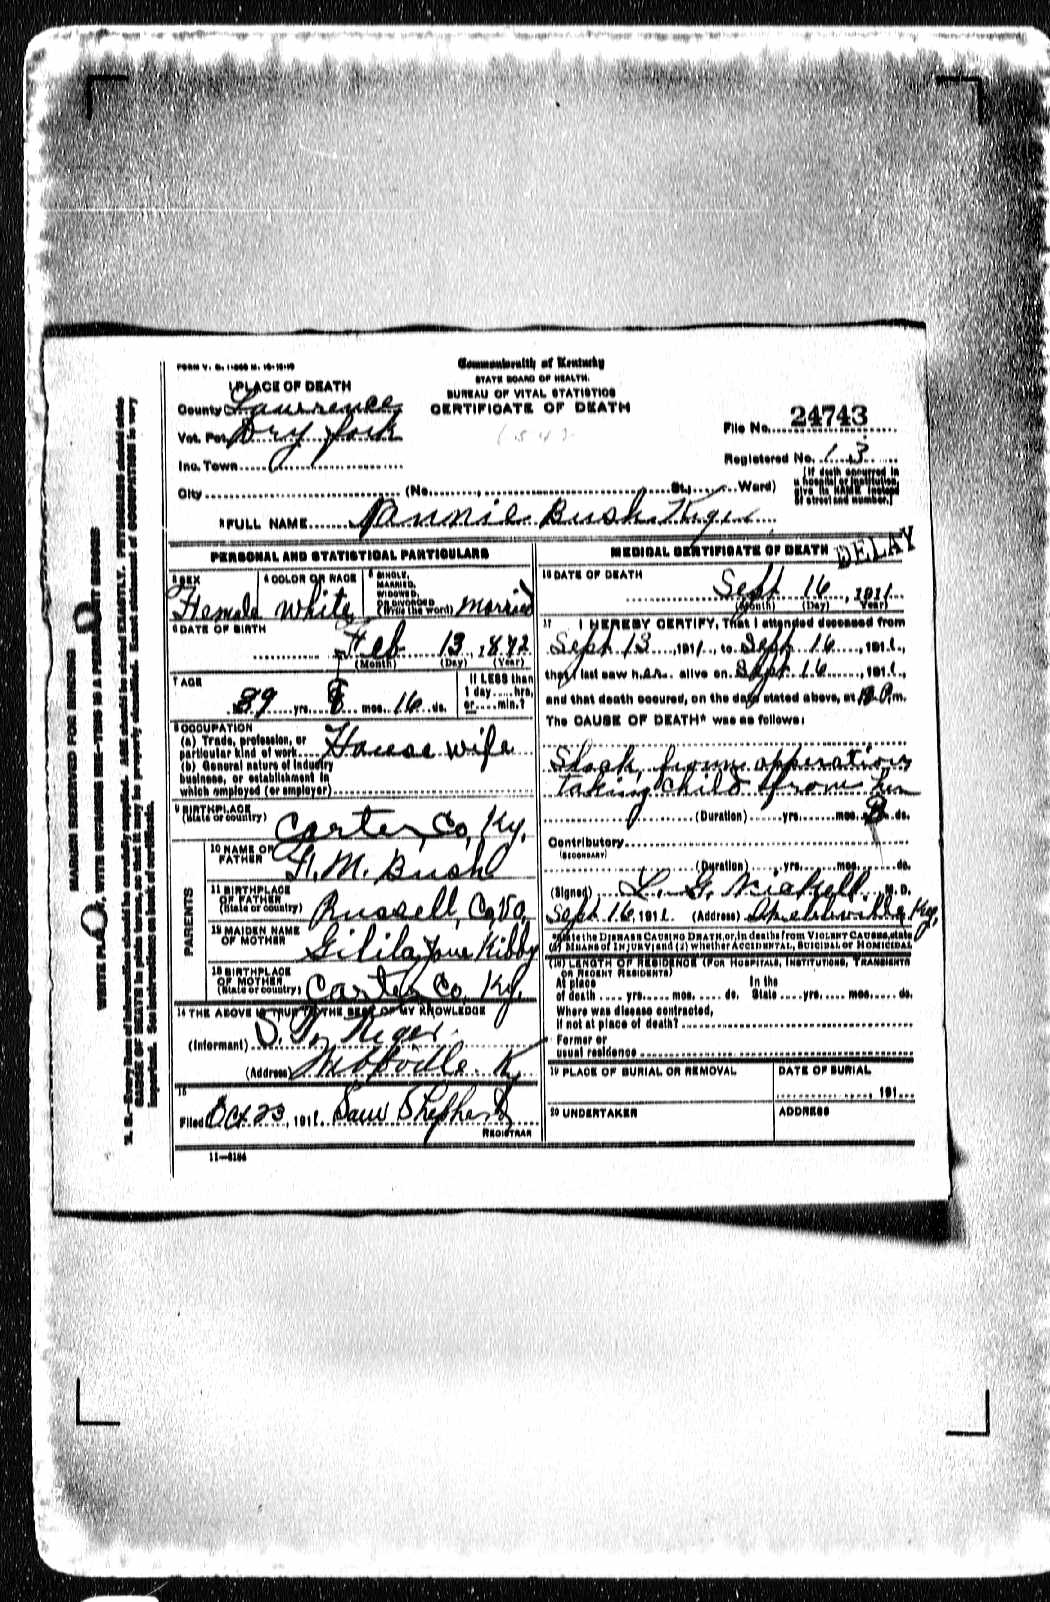 FORM V. S. 1
Commonwealth of Kentucky
STATE BOARD OF HEALTH.
BUREAU OF VITAL STATISTICS
CERTIFICATE OF DEATH
1 PLACE OF DEATH
County Lawrence
Vot. Pct. Dry fork
Inc. Town
City (No. St.; Ward)
File No. 24743
Registered No. 13
[If death occurred in a hospital or institution, give its NAME instead of street and number.]
2 FULL NAME Annie Bush Kiger
PERSONAL AND STATISTICAL PARTICULARS
3 SEX Female
4 COLOR OR RACE white
5 SINGLE, MARRIED, WIDOWED, OR DIVORCED (Write the word) married
6 DATE OF BIRTH Feb 13, 1872
(Month) (Day) (Year)
7 AGE 39 yrs. 8 mos. 16 ds.
If LESS than 1 day hrs. or min.?
8 OCCUPATION
(a) Trade, profession, or particular kind of work House wife
(b) General nature of industry business, or establishment in which employed (or employer)
9 BIRTHPLACE (State or country) Carter, Co, Ky.
PARENTS
10 NAME OF FATHER F. M. Bush
11 BIRTHPLACE OF FATHER (State or country) Russell, Co, Va.
12 MAIDEN NAME OF MOTHER Jane Kibby
13 BIRTHPLACE OF MOTHER (State or country) Carter, Co, Ky.
14 THE ABOVE IS TRUE TO THE BEST OF MY KNOWLEDGE
(Informant) Kiger
(Address)
15
Filed Oct 23, 1911. Sam Shepherd
REGISTRAR
11—6184
MEDICAL CERTIFICATE OF DEATH
DELAY
16 DATE OF DEATH
Sept 16, 1911
(Month) (Day) Year)
17 I HEREBY CERTIFY, That I attended deceased from
Sept 13, 1911, to Sept 16, 1911.,
that I last saw her alive on Sept 16, 1911.,
and that death occured, on the date stated above, at P.m.
The CAUSE OF DEATH* was as follows:
Shock from opperation
taking child from her
(Duration) yrs. mos. 3 ds.
Contributory
(SECONDARY)
(Duration) yrs. mos. ds.
(Signed) L. G. Nickell M. D.
Sept 16, 1911. (Address) Ky.
*State the DISEASE CAUSING DEATH, or, in deaths from VIOLENT CAUSES, state
(1) MEANS OF INJURY; and (2) whether ACCIDENTAL, SUICIDAL OR HOMICIDAL
(18) LENGTH OF RESIDENCE (FOR HOSPITALS, INSTITUTIONS, TRANSIENTS
OR RECENT RESIDENTS)
At place of death yrs. mos. ds. In the State yrs. mos. ds.
Where was disease contracted,
if not at place of death?
Former or
usual residence
19 PLACE OF BURIAL OR REMOVAL
DATE OF BURIAL
, 191
20 UNDERTAKER
ADDRESS
MARGIN RESERVED FOR BINDING
WRITE PLAINLY, WITH UNFADING INK—THIS IS A PERMANENT RECORD
N. B.—Every item of information should be carefully supplied. AGE should be stated EXACTLY. PHYSICIANS should state
CAUSE OF DEATH in plain terms, so that it may be properly classified. Exact statement of OCCUPATION is very
important. See instructions on back of certificate.